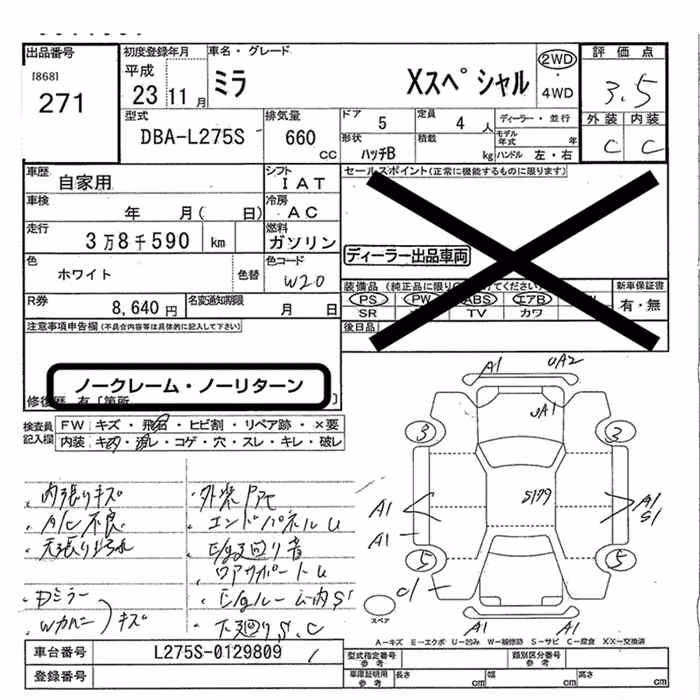 出品番号
[868]
271
初度登録年月
平成
23 11 月
車名・グレード
ミラ
Xスペシャル
2WD
・
4WD
評価点
3.5
外装 内装
C C
型式
DBA-L275S
排気量
660
CC
ドア
5
定員
4 人
形状
ハッチB
積載
kg
ディーラー・並行
モデル年式 年
ハンドル 左・右
車歴
自家用
シフト
IAT
車検
年 月( 日)
冷房
AC
走行
3万8千590 km
燃料
ガソリン
色
ホワイト
色替
色コード
W20
R券
8,640 円
名変通知期限
月 日
セールスポイント(正常に機能するものに限ります)
ディーラー出品車両
装備品(純正品に限り
けてください)
新車保証書
PS PW ABS エアB
有・無
SR TV カワ
後日品
注意事項申告欄(不具合内容等は具体的に記入して下さい)
ノークレーム・ノーリターン
修復歴 有[箇所 ]
検査員
記入欄
FW キズ・飛石・ヒビ割・リペア跡・×要
内装 キズ・汚レ・コゲ・穴・スレ・キレ・破レ
・内張りキズ
・A/C不良
・天張り汚れ
・Dミラー
・Wカバー
キズ
・外装
・エンドパネルU
・E/g下回り
・E/gルーム内S
・下回りS、C
A1
UA2
UA1
3
3
S179
A1
A1
A1
S1
5
5
A1
A1
スペア
A-キズ E-エクボ U-凹み W-補修跡 S-サビ C-腐食 XX-交換済
車台番号
L275S-0129809
登録番号
型式指定番号
参考
類別区分番号
参考
車庫証明用
参考
長さ cm 幅 cm 高さ cm